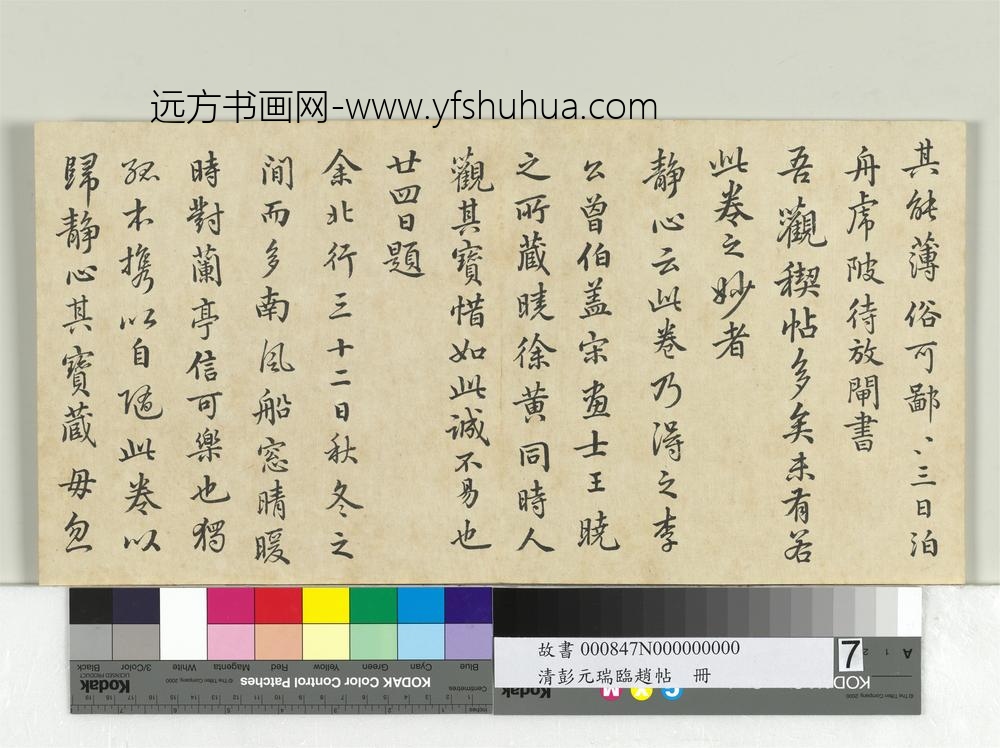 远方书画网-www.yfshuhua.com
其能薄俗可鄙、三日泊
舟虎陂待放閘書
吾觀稧帖多矣未有若
此卷之妙者
靜心云此卷乃得之李
公曾伯蓋宋畫士王曉
之所藏曉徐黃同時人
觀其寶惜如此誠不易也
廿四日題
余北行三十二日秋冬之
間而多南風船窓晴暖
時對蘭亭信可樂也獨
孤本攜以自隨此卷以
歸靜心其寶藏毋忽
Blue
Cyan
Green
Yellow
Red
Magenta
White
3/Color
Black
KODAK Color Control Patches
Kodak
LICENSED PRODUCT
© The Tiffen Company, 2000
Centimetres
Inches
故書 000847N000000000
清彭元瑞臨趙帖 冊
7
A 1 2
Kodak
KOD
© The Tiffen Company, 2000
M Y C